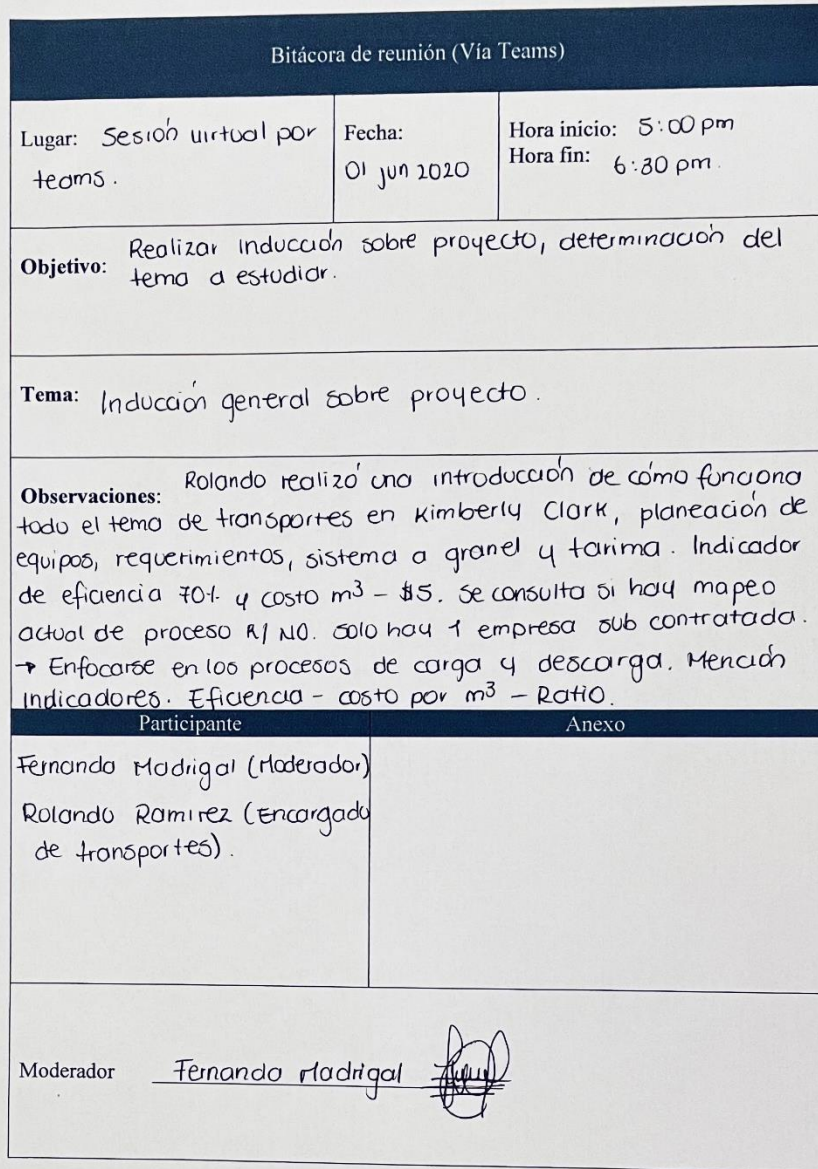 Bitácora de reunión (Vía Teams)
Lugar: Sesión virtual por
teams.
Fecha:
01 jun 2020
Hora inicio: 5:00 pm
Hora fin: 6:30 pm.
Objetivo: Realizar inducción sobre proyecto, determinación del
tema a estudiar.
Tema: Inducción general sobre proyecto.
Observaciones: Rolando realizó una introducción de cómo funciona
todo el tema de transportes en Kimberly Clark, planeación de
equipos, requerimientos, sistema a granel y tarima. Indicador
de eficiencia 70% y costo m³ - $5. Se consulta si hay mapeo
actual de proceso R/ NO. Solo hay 1 empresa sub contratada.
→ Enfocarse en los procesos de carga y descarga. Mención
indicadores. Eficiencia - costo por m³ - Ratio.
Participante
Fernando Madrigal (Moderador)
Rolando Ramirez (Encargado
de transportes).
Anexo
Moderador Fernando Madrigal